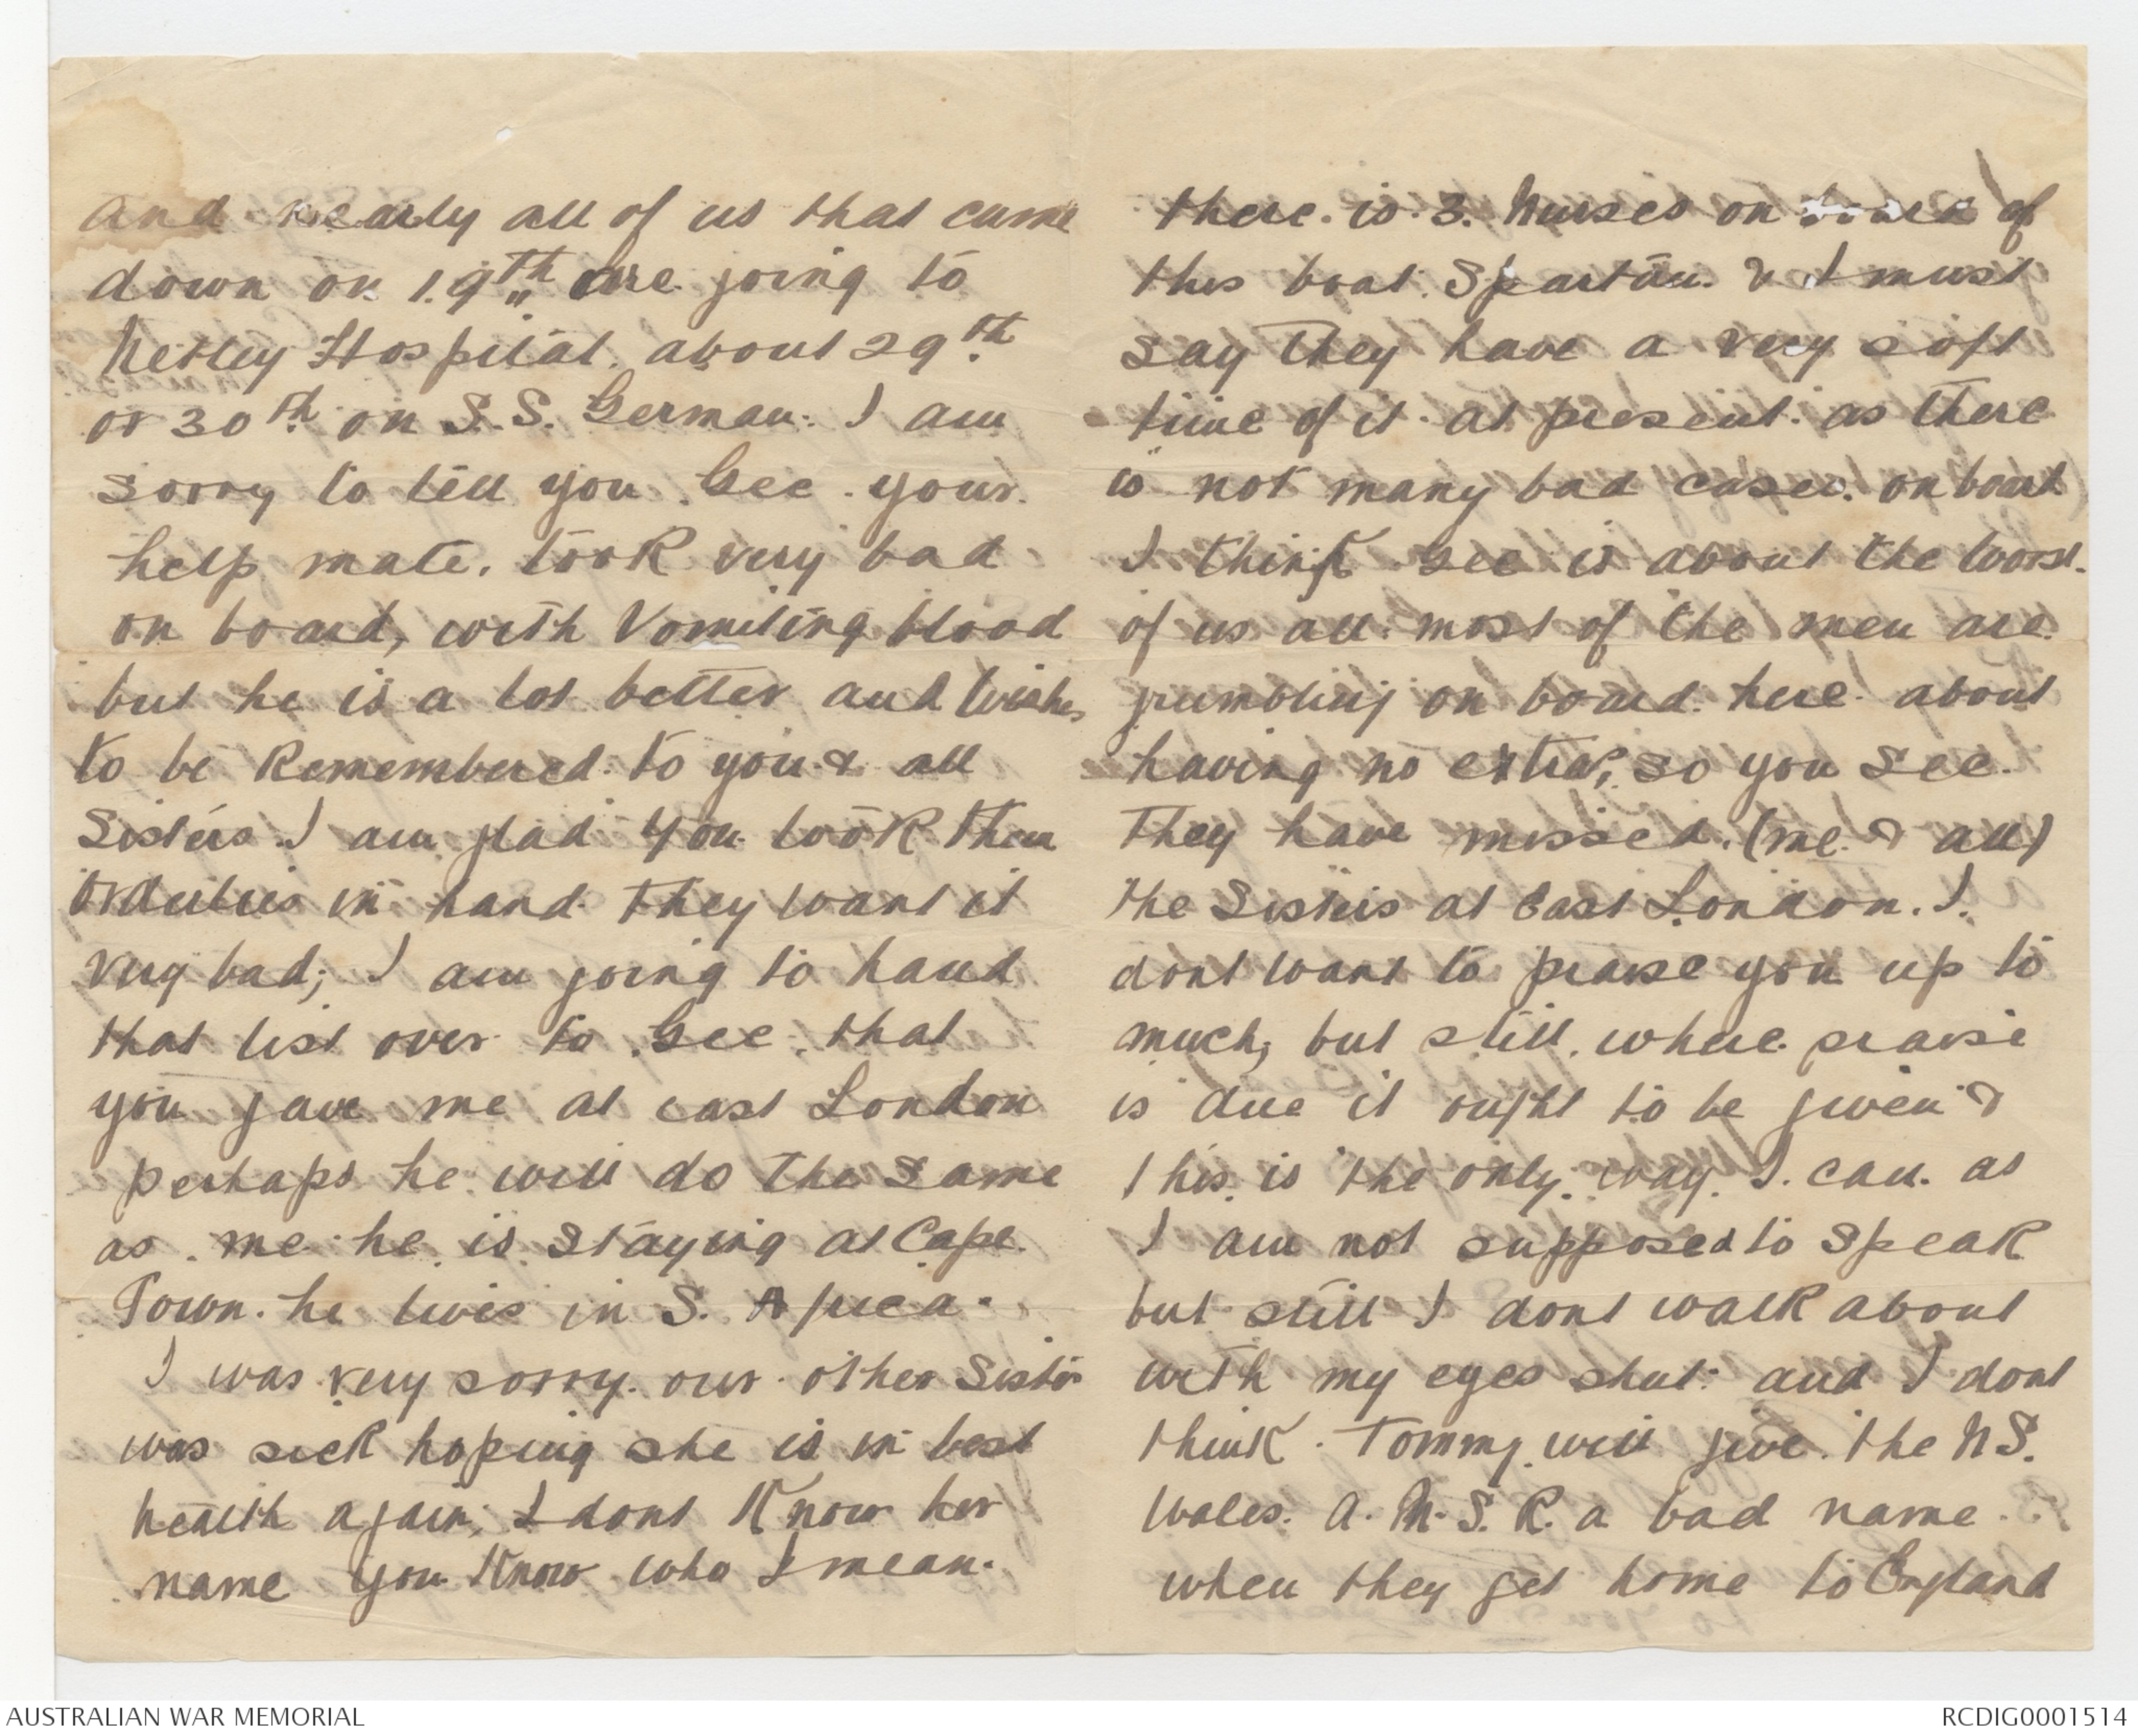 and nearly all of us that came
down on 19th are going to
Netley Hospital. about 29th
or 30th on S.S. German. I am
sorry to tell you Gee. your
help mate. took very bad
on board, with Vomiting blood
but he is a lot better and wishes
to be Remembered to you & all
Sisters. I am glad you took them
Orderlies in hand they want it
very bad; I am going to hand
that list over to Gee. that
you gave me at east London
perhaps he will do the same
as me he is staying at Cape
Town. he lives in S. Africa.
I was very sorry. our other Sister
was sick hoping she is in best
health again; I dont Know her
name you Know who I mean.
there is 3. Nurses on board of
this boat. Spartan. & I must
say they have a very soft
time of it at present. as there
is not many bad cases. on board
I think Gee is about the worst.
of us all. most of the men are
grumbling on board here about
having no extras, so you see.
they have missed. (me & all)
the Sisters at East London. I.
dont want to praise you up to
much; but still. where praise
is due it ought to be given &
this is the only way I can. as
I am not supposed to speak
but still I dont walk about
with my eyes shut. and I dont
think Tommy will give the N S.
Wales. A. N. S. R. a bad name
when they get home to England
AUSTRALIAN WAR MEMORIAL
RCDIG0001514